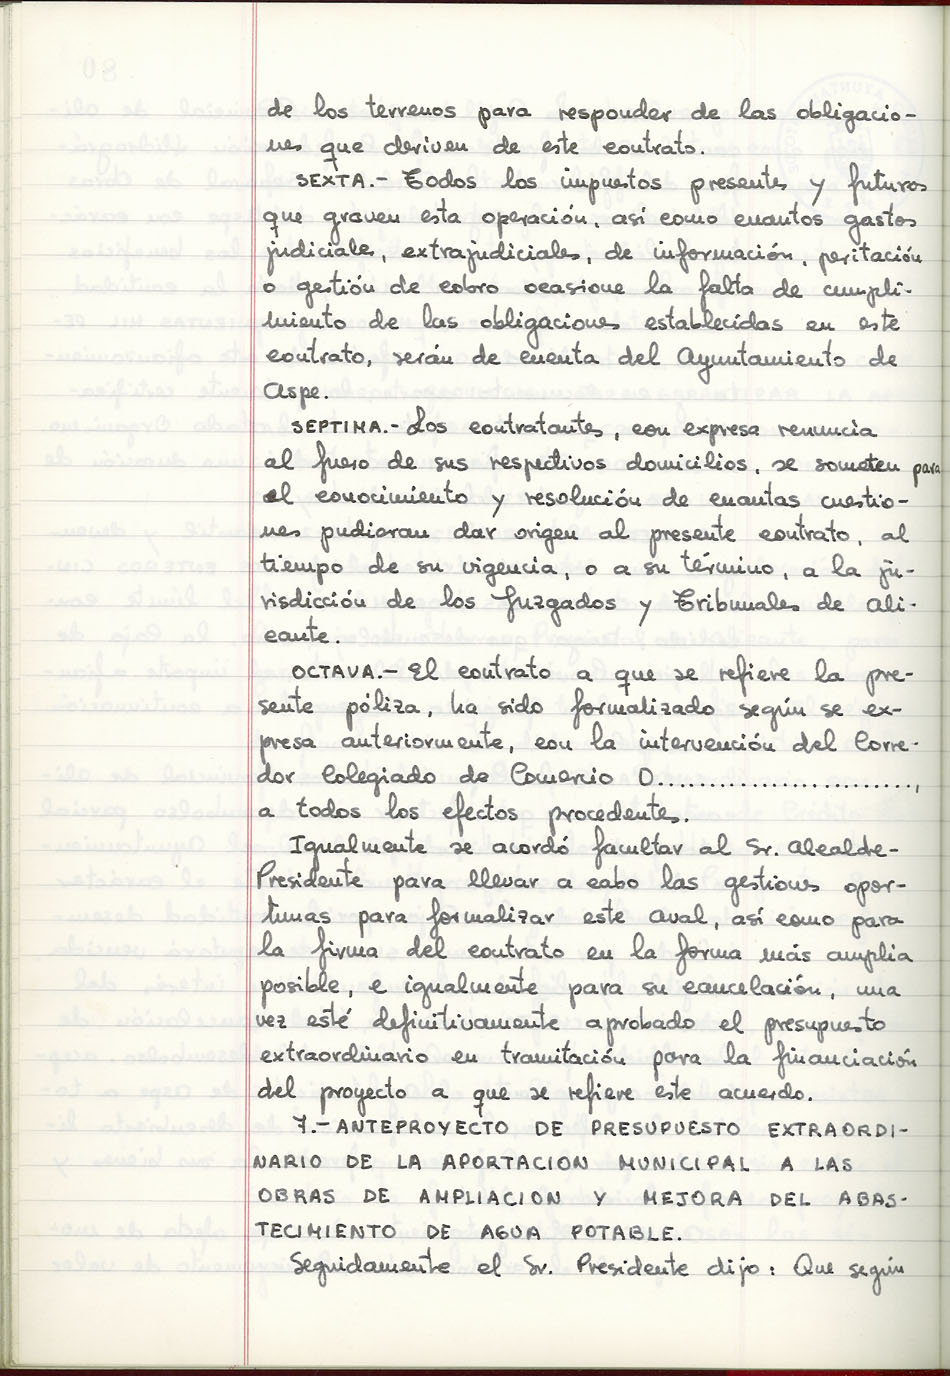 de los terrenos para responder de las obligacio-
nes que deriven de este contrato.
SEXTA.- Todos los impuestos presentes y futuros
que graven esta operación, así como cuantos gastos
judiciales, extrajudiciales, de información, peritación
o gestión de cobro ocasione la falta de cumpli-
miento de las obligaciones establecidas en este
contrato, serán de cuenta del Ayuntamiento de
Aspe.
SEPTIMA.- Los contratantes, con expresa renuncia
al fuero de sus respectivos domicilios, se someten para
el conocimiento y resolución de cuantas cuestio-
nes pudieran dar origen al presente contrato, al
tiempo de su vigencia, o a su término, a la ju-
risdicción de los Juzgados y Tribunales de Ali-
cante.
OCTAVA.- El contrato a que se refiere la pre-
sente póliza, ha sido formalizado según se ex-
presa anteriormente, con la intervención del Corre-
dor Colegiado de Comercio D........................,
a todos los efectos procedentes.
Igualmente se acordó facultar al Sr. Alcalde-
Presidente para llevar a cabo las gestiones opor-
tunas para formalizar este aval, así como para
la firma del contrato en la forma más amplia
posible, e igualmente para su cancelación, una
vez esté definitivamente aprobado el presupuesto
extraordinario en tramitación para la financiación
del proyecto a que se refiere este acuerdo.
7.- ANTEPROYECTO DE PRESUPUESTO EXTRAORDI-
NARIO DE LA APORTACION MUNICIPAL A LAS
OBRAS DE AMPLIACION Y MEJORA DEL ABAS-
TECIMIENTO DE AGUA POTABLE.
Seguidamente el Sr. Presidente dijo: Que según